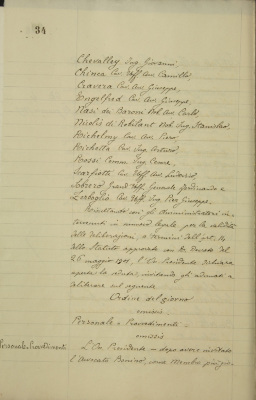 34
Chevalley Ing. Giovanni
Chinea Cav. Uff. Avv. Camillo
Cravera Cav. Avv. Giuseppe
Engelfred Cav. Avv. Giuseppe
Nasi dei Baroni Not. Avv. Carlo
Nicolis di Robilant Nob. Ing. Stanislao
Michelmy Cav. Avv. Piero
Bichetta Cav. Ing. Arturo
Rossi Comm. Ing. Cesare
Scarfiotti Cav. Uff. Avv. Lodovico
Sobrero Grand'Uff. Generale Ferdinando e
Zerboglio Cav. Uff. Ing. Pier Giuseppe.
Risultando così gli Amministratori in-
tervenuti in numero legale, per la validità
delle deliberazioni, a termini dell'art. 14
dello Statuto, approvato con R. Decreto del
26 maggio l'On. Presidente dichiara
aperta la seduta, invitando gli adunati a
deliberare sul seguente
Ordine del giorno
omissis
Personale = Provvedimenti =
omissis
Personale Provvedimenti
L'On. Presidente = dopo avere invitato
l'avvocato Bonino, come membro più gio-